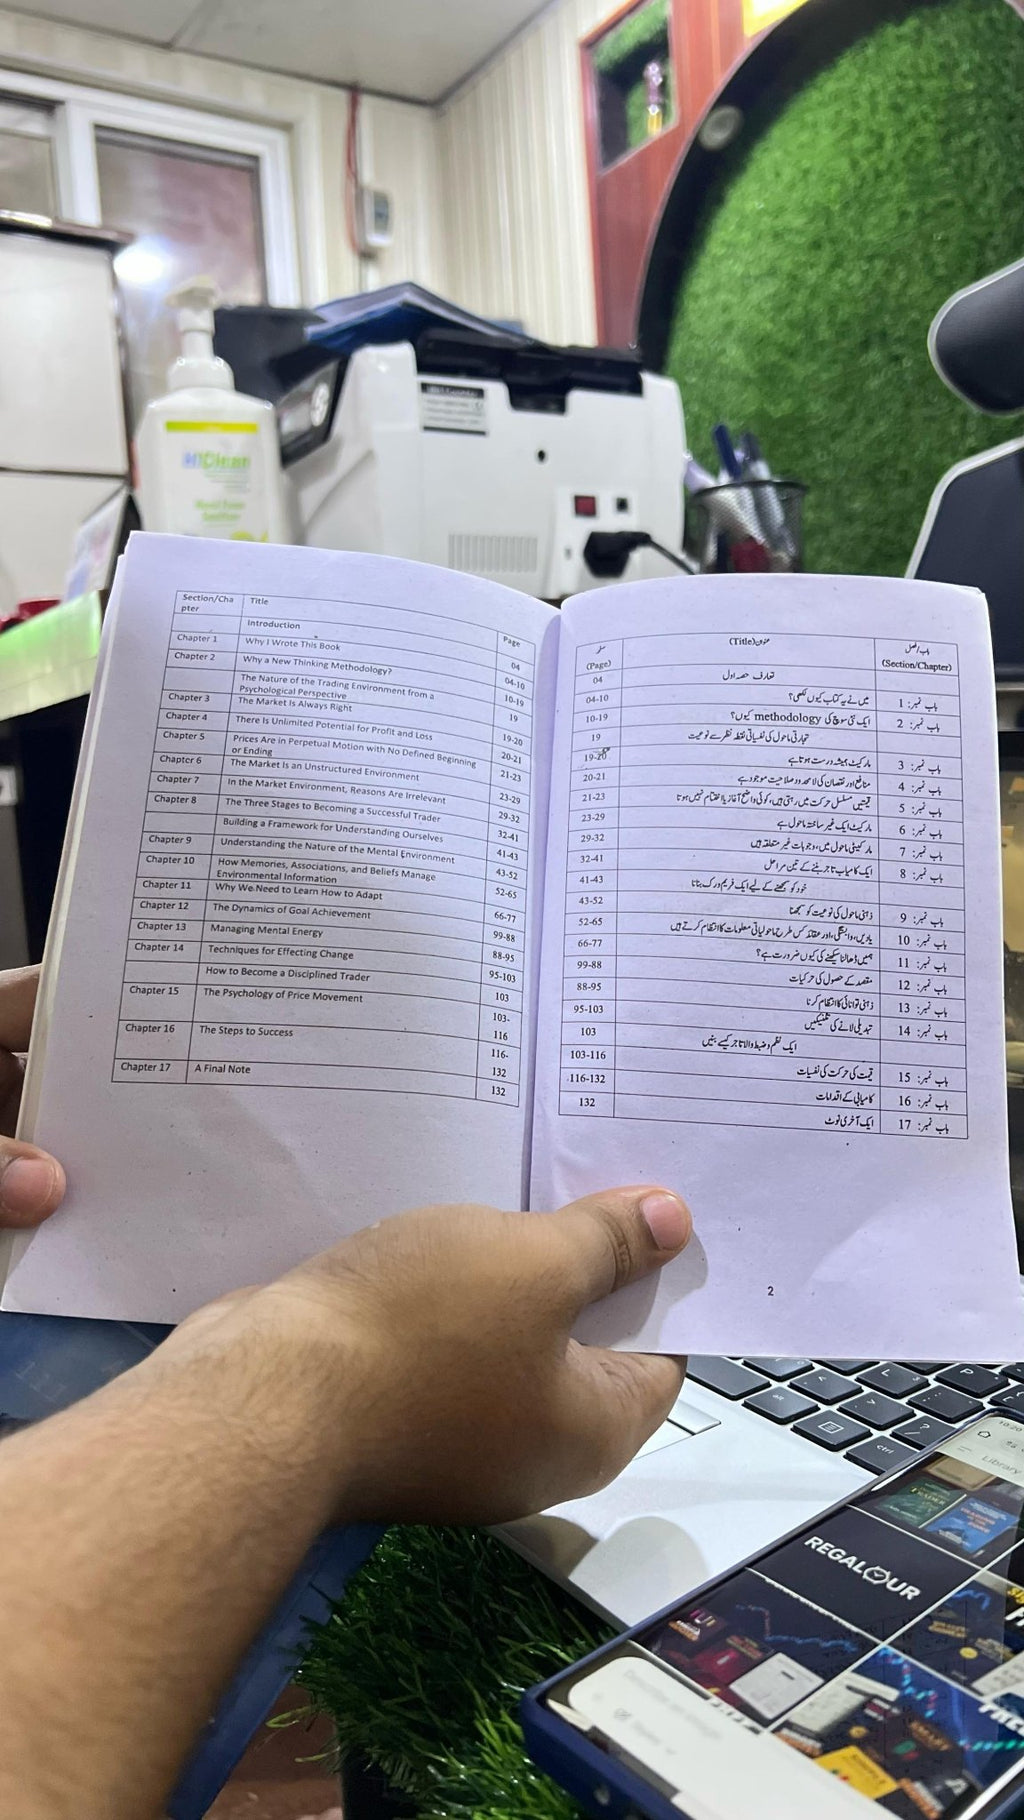 HiClean
Section/Cha
pter
Title
Page
Introduction
04
Chapter 1
Why I Wrote This Book
04-10
Chapter 2
Why a New Thinking Methodology?
10-19
The Nature of the Trading Environment from a
Psychological Perspective
19
Chapter 3
The Market Is Always Right
19-20
Chapter 4
There Is Unlimited Potential for Profit and Loss
20-21
Chapter 5
Prices Are in Perpetual Motion with No Defined Beginning
or Ending
21-23
Chapter 6
The Market Is an Unstructured Environment
23-29
Chapter 7
In the Market Environment, Reasons Are Irrelevant
29-32
Chapter 8
The Three Stages to Becoming a Successful Trader
32-41
Building a Framework for Understanding Ourselves
41-43
Chapter 9
Understanding the Nature of the Mental Environment
43-52
Chapter 10
How Memories, Associations, and Beliefs Manage
Environmental Information
52-65
Chapter 11
Why We Need to Learn How to Adapt
66-77
Chapter 12
The Dynamics of Goal Achievement
99-88
Chapter 13
Managing Mental Energy
88-95
Chapter 14
Techniques for Effecting Change
95-103
How to Become a Disciplined Trader
103
Chapter 15
The Psychology of Price Movement
103-
116
Chapter 16
The Steps to Success
116-
132
Chapter 17
A Final Note
132
باب/فصل
(Section/Chapter)
عنوان(Title)
صفحہ
(Page)
تعارف حصہ اول
04
باب نمبر: 1
میں نے یہ کتاب کیوں لکھی؟
04-10
باب نمبر: 2
ایک نئی سوچ کی methodology کیوں؟
10-19
تجارتی ماحول کی نفسیاتی نقطہ نظر سے نوعیت
19
باب نمبر: 3
مارکیٹ ہمیشہ درست ہوتا ہے
19-20
باب نمبر: 4
منافع اور نقصان کی لامحدود صلاحیت موجود ہے
20-21
باب نمبر: 5
قیمتیں مسلسل حرکت میں رہتی ہیں، کوئی واضح آغاز یا اختتام نہیں ہوتا
21-23
باب نمبر: 6
مارکیٹ ایک غیر ساختہ ماحول ہے
23-29
باب نمبر: 7
مارکیٹی ماحول میں، وجوہات غیر متعلقہ ہیں
29-32
باب نمبر: 8
ایک کامیاب تاجر بننے کے تین مراحل
32-41
خود کو سمجھنے کے لیے ایک فریم ورک بنانا
41-43
باب نمبر: 9
ذہنی ماحول کی نوعیت کو سمجھنا
43-52
باب نمبر: 10
یادیں، وابستگی، اور عقائد کس طرح ماحولیاتی معلومات کا انتظام کرتے ہیں
52-65
باب نمبر: 11
ہمیں ڈھالنا سیکھنے کی کیوں ضرورت ہے؟
66-77
باب نمبر: 12
مقصد کے حصول کی حرکیات
99-88
باب نمبر: 13
ذہنی توانائی کا انتظام کرنا
88-95
باب نمبر: 14
تبدیلی لانے کی تکنیکیں
95-103
ایک نظم و ضبط والا تاجر کیسے بنیں
103
باب نمبر: 15
قیمت کی حرکت کی نفسیات
103-116
باب نمبر: 16
کامیابی کے اقدامات
116-132
باب نمبر: 17
ایک آخری نوٹ
132
2
L
P
<
>
?
alt
ctrl
Library
REGALOUR